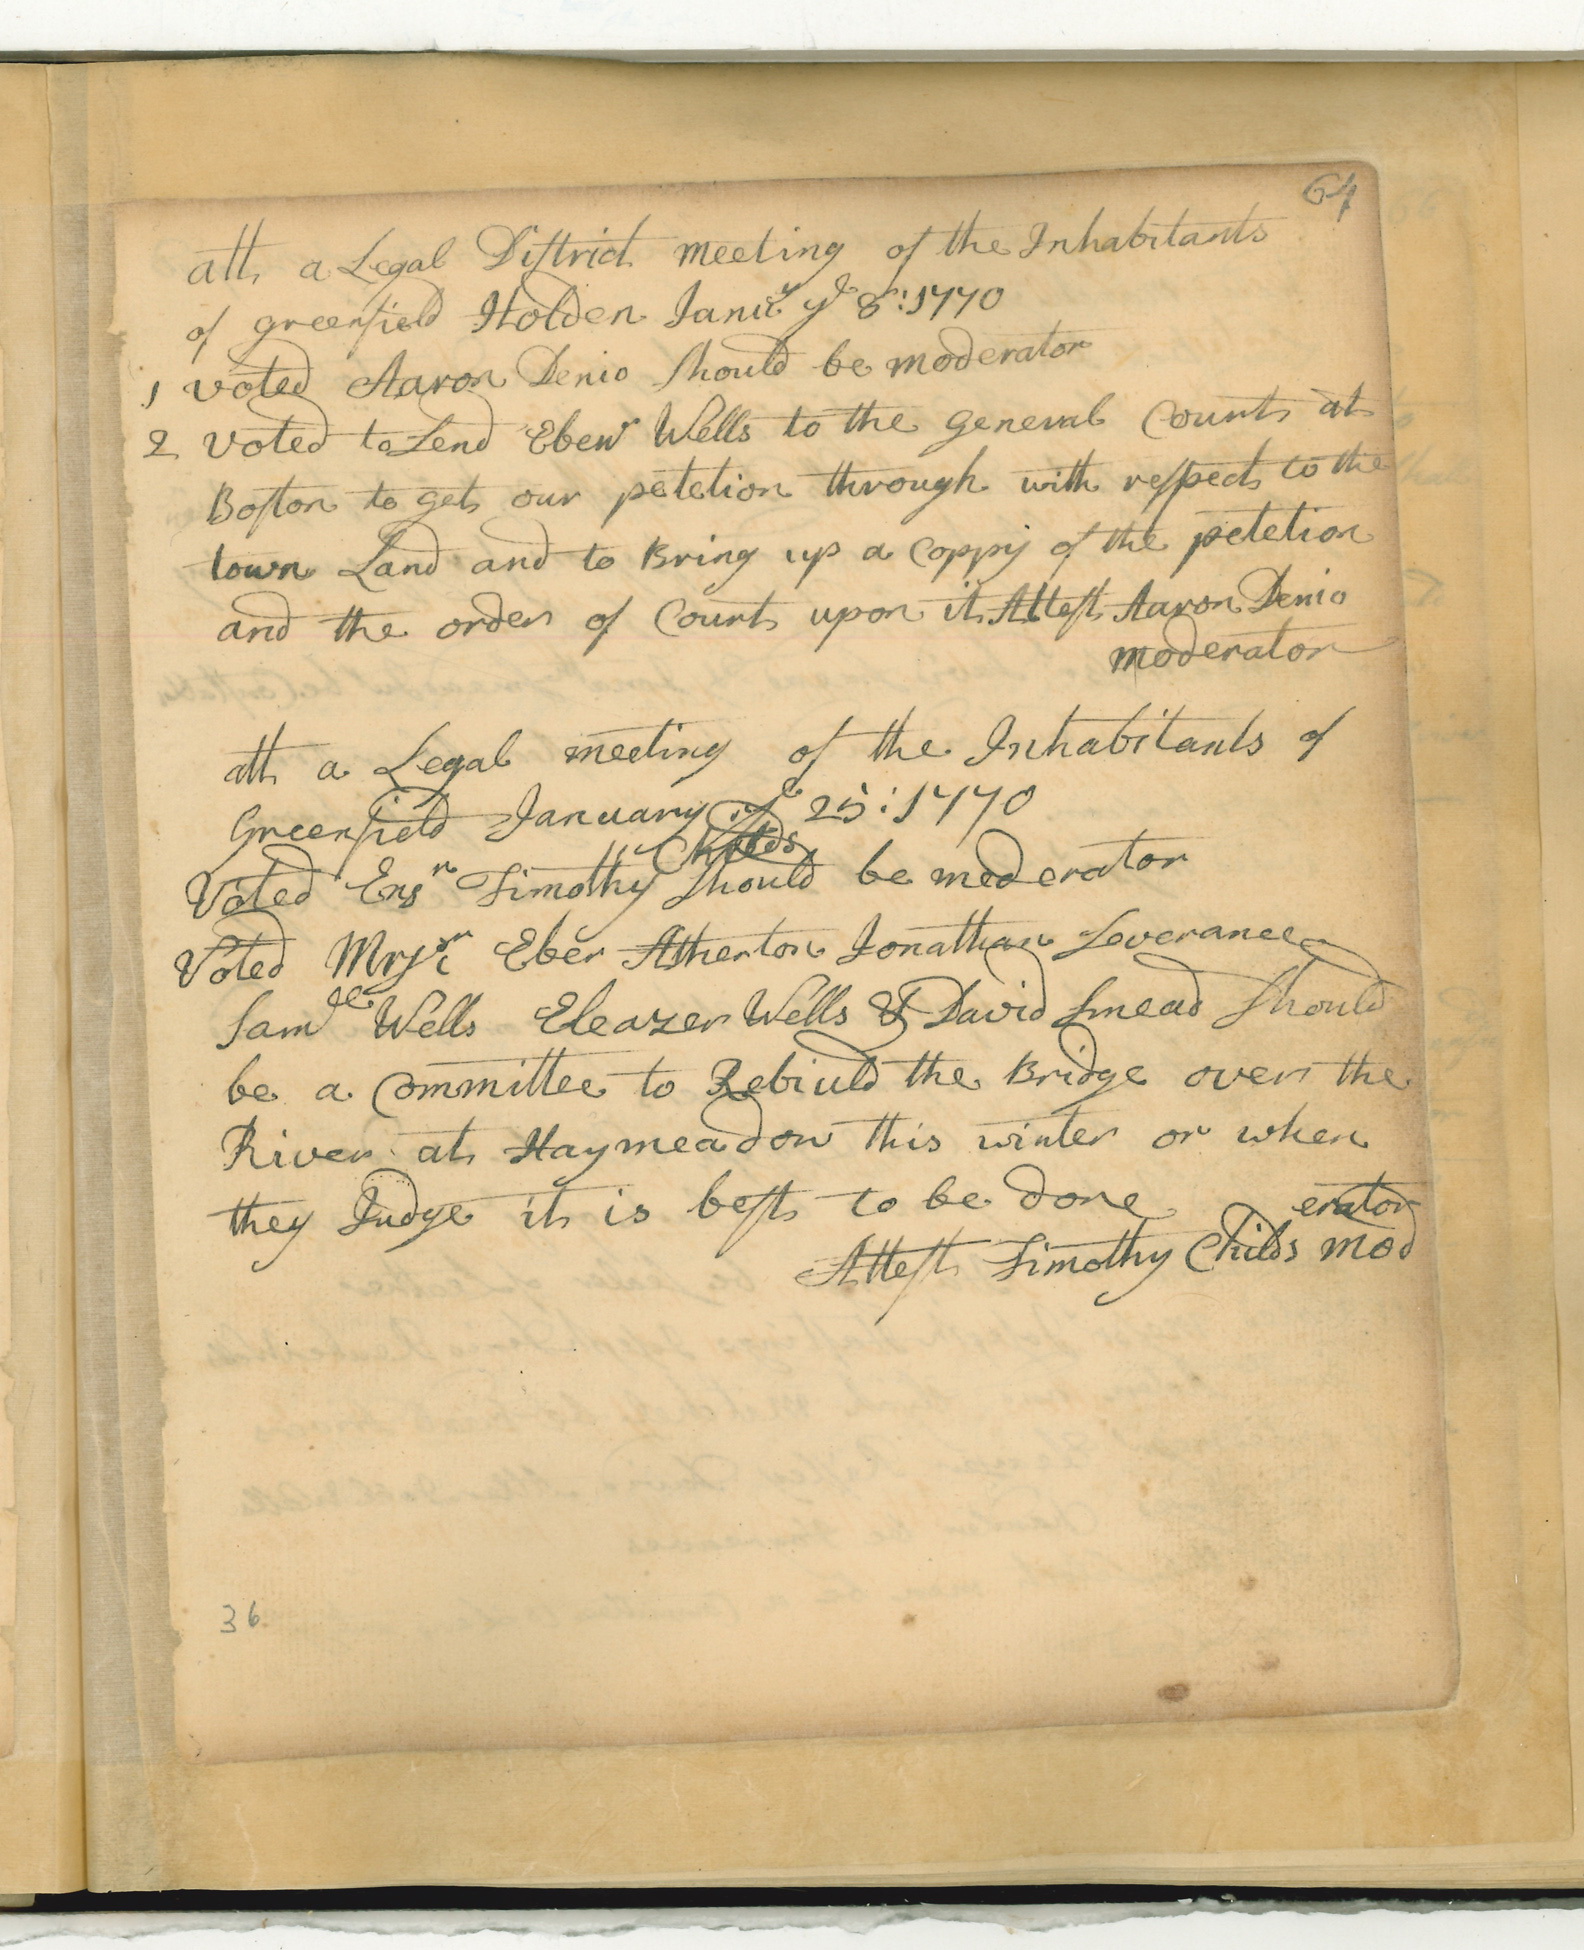 64
att a Legal District meeting of the Inhabitants
of greenfield Holden Janur ye 8: 1770
1 voted Aaron Denio should be moderator
2 voted to Send Ebenr Wells to the general Court at
Boston to get our petetion through with respect to the
town Land and to Bring up a Coppy of the petetion
and the order of Court upon it Attest Aaron Denio
moderator
att a Legal meeting of the Inhabitants of
Greenfield January ye 25: 1770
Childs
Voted Ensn Timothy should be moderator
Voted Eber Atherton Jonathan Severance
Samll Wells Eleazer Wells & David Smead Should
be a Committee to Rebiuld the Bridge over the
River at Haymeadow this winter or when
they Judge it is best to be done
erator
Attest Timothy Childs mod
36